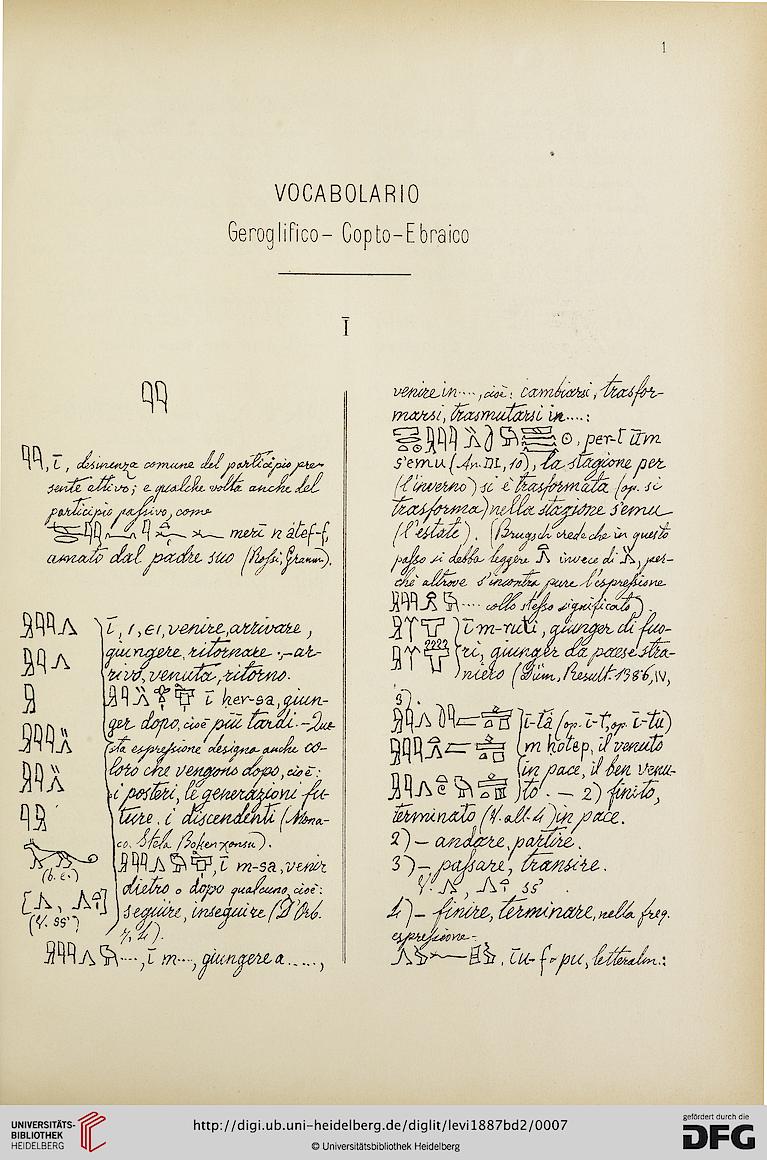 1
VOCABOLARIO
Geroglifico-Copto-Ebraico
Ī
, ī, desinenza comune del participio pre-
sente attivo; e qualche volta anche del
participio passivo, come
merī n átef-f,
amato dal padre suo (Rossi, Gramm).
ī, ı, ⲉⲓ, venire, arrivare,
giungere, ritornare.-ar-
rivo, venuta, ritorno.
ī her-sa, giun-
ger dopo, cioè più tardi.-Que-
sta espressione designa anche co-
loro che vengono dopo, cioè:
i posteri, le generazioni fu-
ture, i discendenti (Mona-
co, Stela Bokenxonsu).
(b. e.)
ī m-sa, venir
dietro o dopo qualcuno, cioè:
seguire, inseguire (D'Orb.
(V. ss')
ī m...., giungere a ......,
venire in...., cioè: cambiarsi, trasfor-
marsi, trasmutarsi in....:
per-ī
s'emu (An. III, 10), la stagione per
(l'inverno) si è trasformata (op. si
trasforma) nella stazione s'emu
(l'estate). (Brugsch crede che in questo
passo si debba leggere invece di , per-
chè altrove s'incontra pure l'espressione
.... collo stesso significato)
ī m-ruti, giunger di fuo-
ri, giunger da paese stra-
niero (Düm, Result. IV,
3).
ī-tá (op. ī-t, op. ī-tu)
m hotep, il venuto
in pace, il ben venu-
to. - 2) finito,
terminato (V. all. 4) in pace.
2) - andare, partire.
3) - passare, transire.
V. , ss'.
4) - finire, terminare, nella freq.
espressione-
, īu-f-pu, letteralm.:
UNIVERSITÄTS-
BIBLIOTHEK
HEIDELBERG
http://digi.ub.uni-heidelberg.de/diglit/levi1887bd2/0007
© Universitätsbibliothek Heidelberg
gefördert durch die
DFG